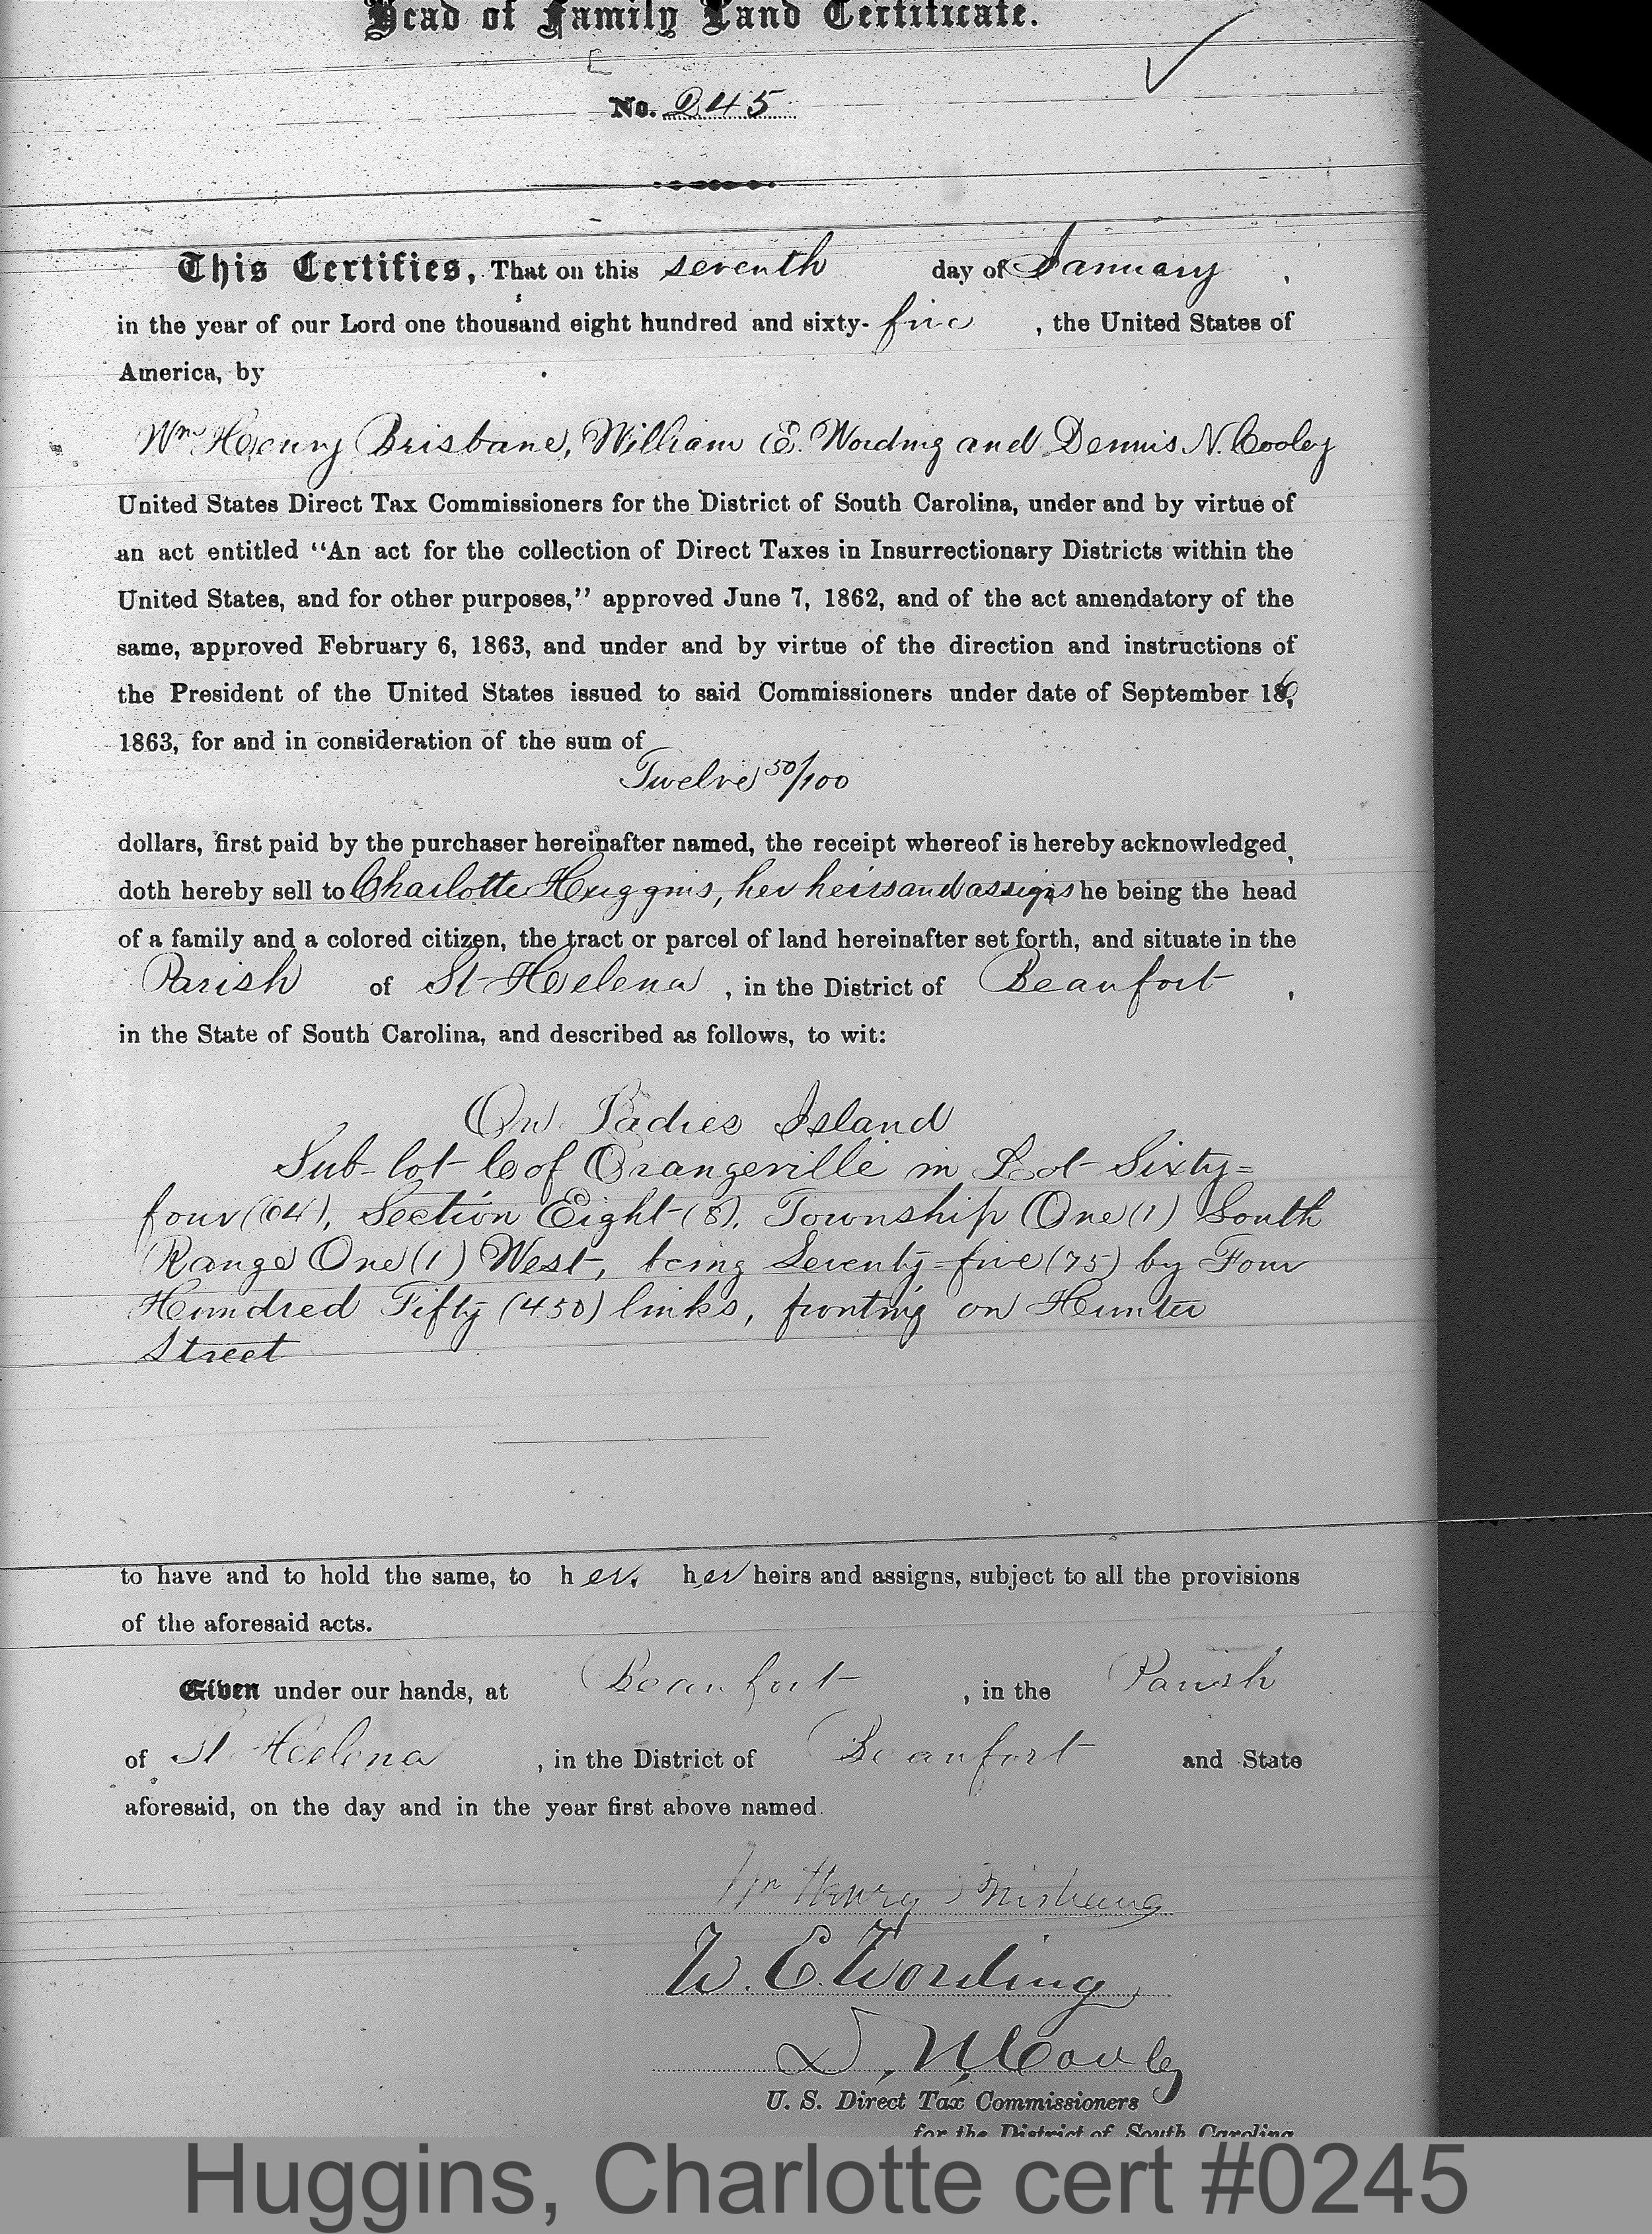 Head of Family Land Certificate.
No. 245
This Certifies, That on this seventh day of January,
in the year of our Lord one thousand eight hundred and sixty-five, the United States of
America, by
Wm Henry Brisbane, William E. Wording and Dennis N. Cooley
United States Direct Tax Commissioners for the District of South Carolina, under and by virtue of
an act entitled "An act for the collection of Direct Taxes in Insurrectionary Districts within the
United States, and for other purposes," approved June 7, 1862, and of the act amendatory of the
same, approved February 6, 1863, and under and by virtue of the direction and instructions of
the President of the United States issued to said Commissioners under date of September 16,
1863, for and in consideration of the sum of
Twelve 50/100
dollars, first paid by the purchaser hereinafter named, the receipt whereof is hereby acknowledged,
doth hereby sell to Charlotte Huggins, her heirs and assigns he being the head
of a family and a colored citizen, the tract or parcel of land hereinafter set forth, and situate in the
Parish of St Helena, in the District of Beaufort,
in the State of South Carolina, and described as follows, to wit:
On Ladies Island
Sub-lot of Orangeville in Lot Sixty-
four (64), Section Eight (8), Township One (1) South
Range One (1) West, being Seventy-five (75) by Four
Hundred Fifty (450) links, fronting on Hunter
Street
to have and to hold the same, to her, her heirs and assigns, subject to all the provisions
of the aforesaid acts.
Given under our hands, at Beaufort, in the Parish
of St Helena, in the District of Beaufort and State
aforesaid, on the day and in the year first above named.
Wm Henry Brisbane
W. E. Wording
D. N. Cooley
U. S. Direct Tax Commissioners
for the District of South Carolina
Huggins, Charlotte cert #0245